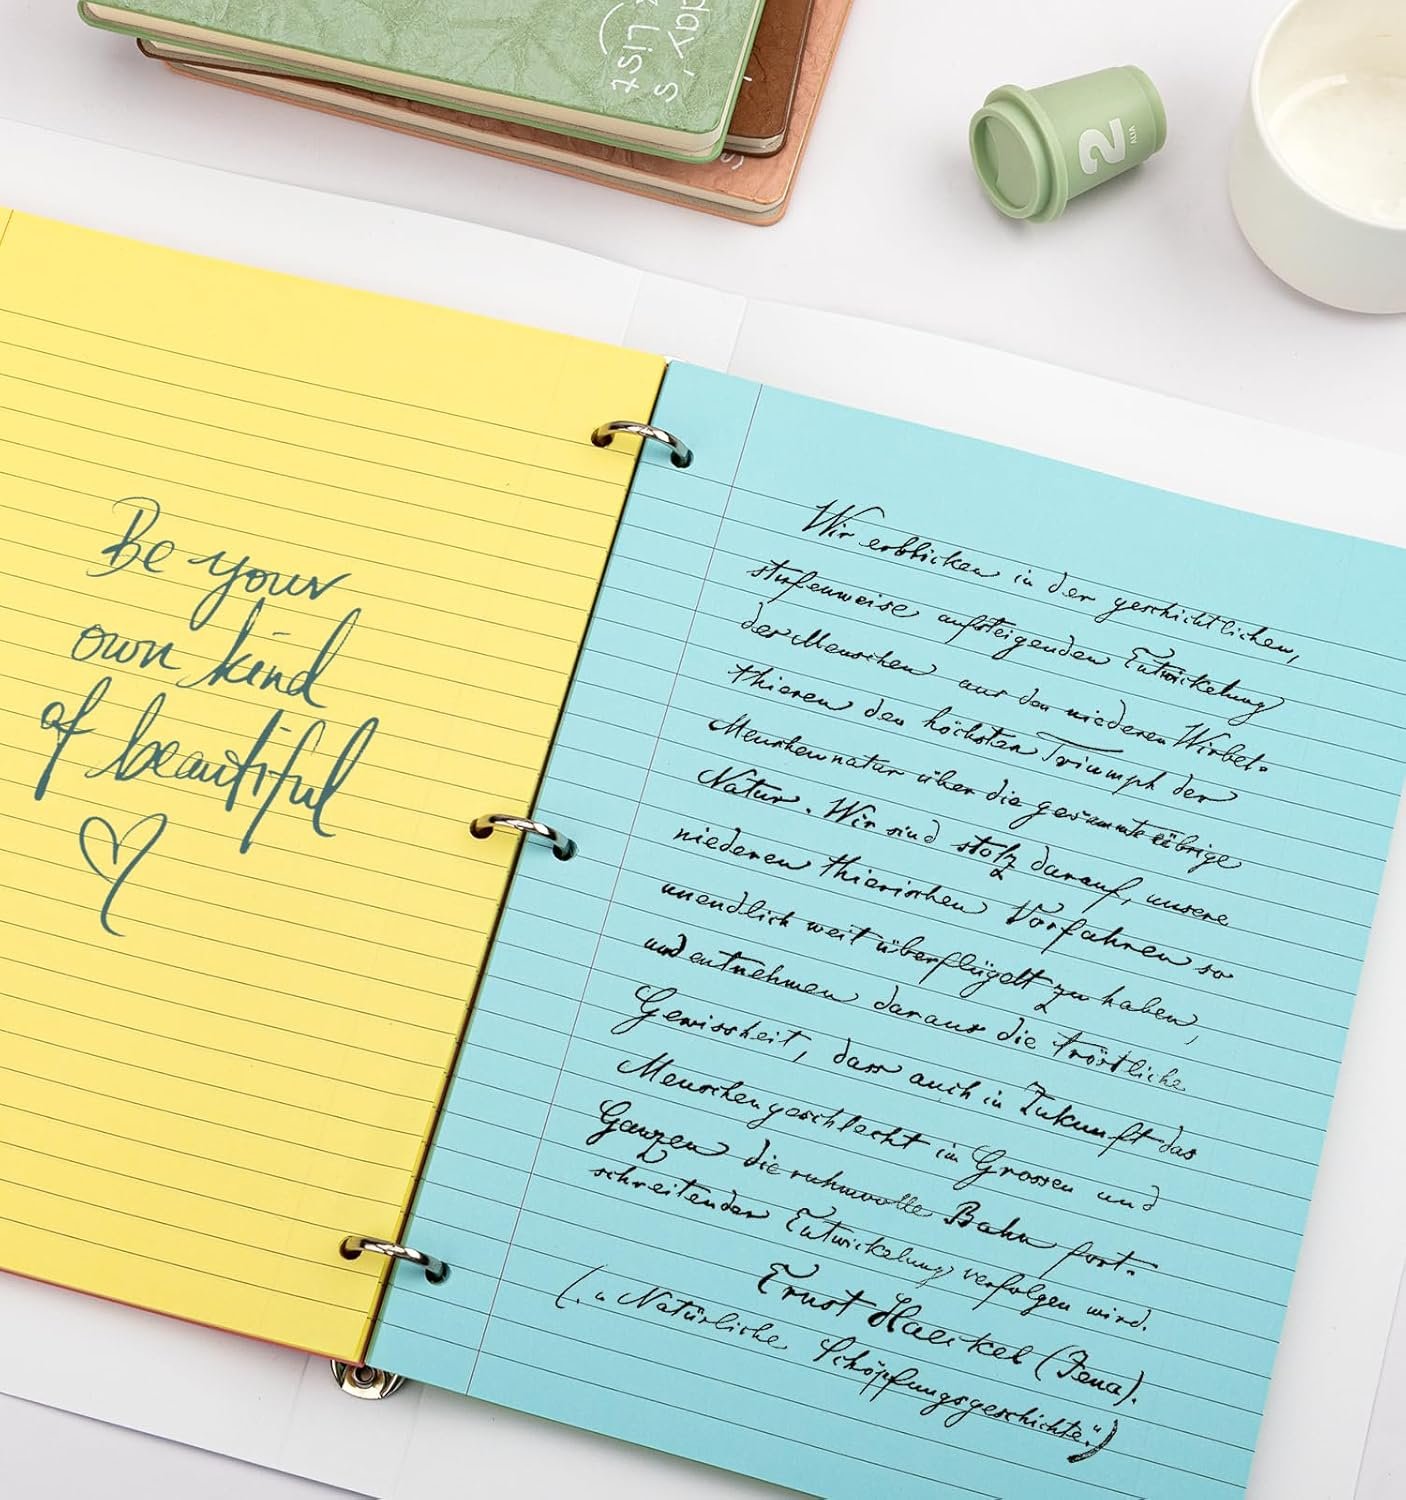 day's
k List
2
AUA
Be your
own kind
of beautiful
Wir erblicken in der geschichtlichen,
stufenweise aufsteigenden Entwickelung
der Menschen aus den niederen Wirbel-
thieren den höchsten Triumph der
Menschennatur über die gesammte übrige
Natur. Wir sind stolz darauf, unsere
niederen thierischen Vorfahren so
unendlich weit überflügelt zu haben,
und entnehmen daraus die tröstliche
Gewissheit, dass auch in Zukunft das
Menschengeschlecht im Grossen und
Ganzen die ruhmvolle Bahn fort-
schreitender Entwickelung verfolgen wird.
Ernst Haeckel (Jena).
(„Natürliche Schöpfungsgeschichte.“)